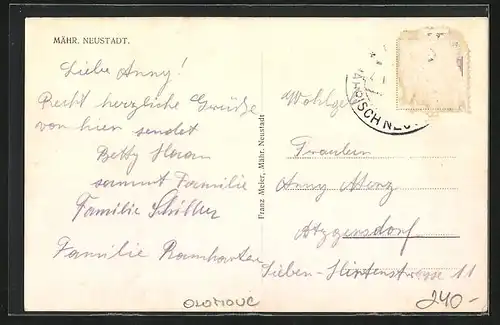 MÄHR. NEUSTADT.
Liebe Anny!
Recht herzliche Grüße
von hier sendet
Betty Haan
sammt Familie
Familie Schiller
Familie Ramharter
Franz Meier, Mähr. Neustadt
MÄHRISCH NEU
Wohlgeb
Fräulein
Anny Menz
Atzgersdorf
Sieben-Hirtenstrasse 11
OLOMOUC
240.-